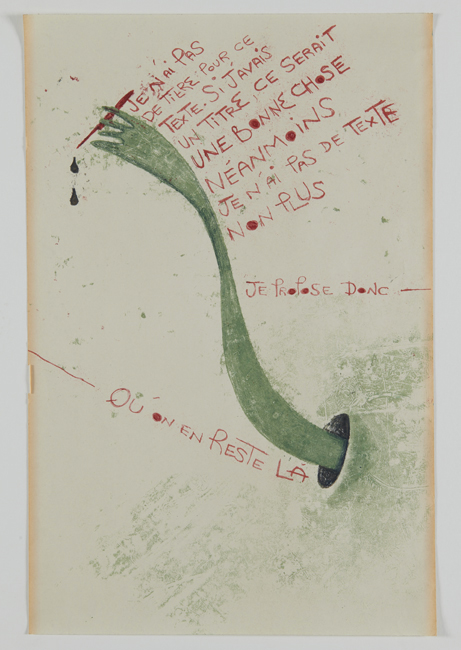 JE N'AI PAS
DE TITRE POUR CE
TEXTE. SI J'AVAIS
UN TITRE CE SERAIT
UNE BONNE CHOSE
NÉANMOINS
JE N'AI PAS DE TEXTE
NON PLUS
JE PROPOSE DONC —
OÙ ON EN RESTE LÀ